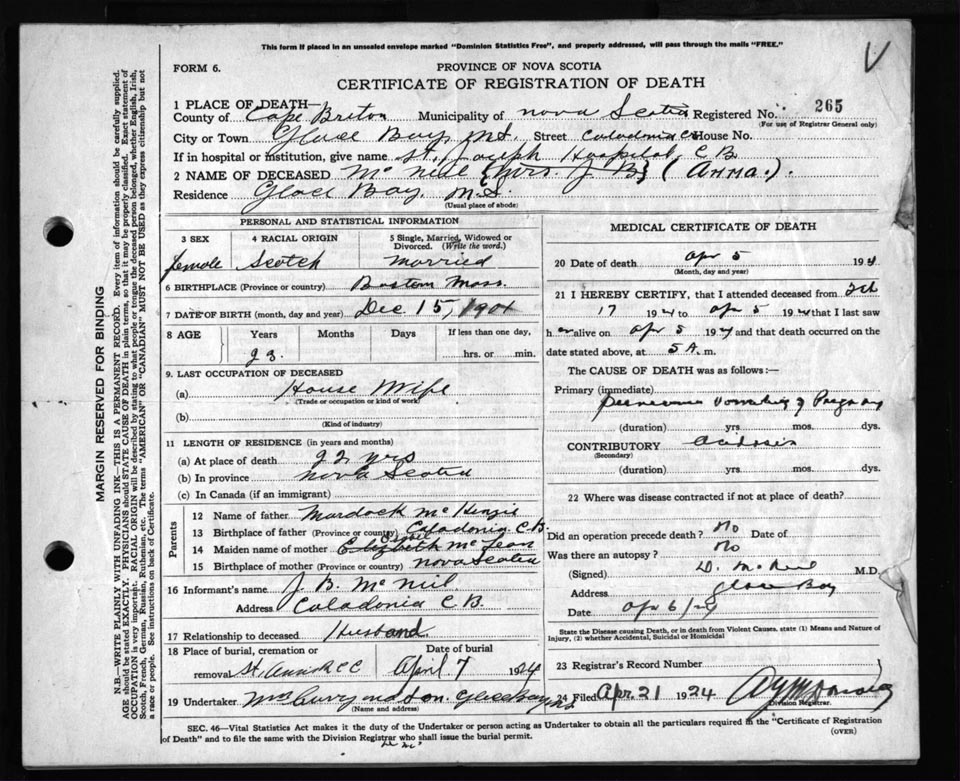 This form if placed in an unsealed envelope marked "Dominion Statistics Free", and properly addressed, will pass through the mails "FREE."
FORM 6.
PROVINCE OF NOVA SCOTIA
CERTIFICATE OF REGISTRATION OF DEATH
1 PLACE OF DEATH—
County of Cape Briton Municipality of Nova Scotia Registered No. 265
(For use of Registrar General only)
City or Town Glace Bay, N.S. Street Caladonia House No.
If in hospital or institution, give name St. Joseph Hospital C B
2 NAME OF DECEASED Mc Neil (Mrs. J B) (Anna.).
Residence Glace Bay, N.S.
(Usual place of abode)
PERSONAL AND STATISTICAL INFORMATION
3 SEX
female
4 RACIAL ORIGIN
Scotch
5 Single, Married, Widowed or Divorced. (Write the word.)
Married
6 BIRTHPLACE (Province or country) Boston Mass.
7 DATE OF BIRTH (month, day and year) Dec 15, 1901
8 AGE
Years Months Days If less than one day,
hrs. or min.
9. LAST OCCUPATION OF DECEASED
(a) House Wife
(Trade or occupation or kind of work)
(b)
(Kind of industry)
11 LENGTH OF RESIDENCE (in years and months)
(a) At place of death 22 yrs
(b) In province Nova Scotia
(c) In Canada (if an immigrant)
Parents
12 Name of father Murdock Mc Kenzie
13 Birthplace of father (Province or country) Caladonia C.B.
14 Maiden name of mother Elizbeth Mc Lean
15 Birthplace of mother (Province or country) Nova Scotia
16 Informant's name J. B. Mc Neil
Address Caladonia C B.
17 Relationship to deceased Husband
18 Place of burial, cremation or removal St. Anns R C C
Date of burial April 7 1924
19 Undertaker
(Name and address)
MEDICAL CERTIFICATE OF DEATH
20 Date of death Apr 5 192
(Month, day and year)
21 I HEREBY CERTIFY, that I attended deceased from Feb
17 1924 to Apr 5 1924 that I last saw
h er alive on Apr 5 1924 and that death occurred on the
date stated above, at 5 A. m.
The CAUSE OF DEATH was as follows:—
Primary (immediate)
Pernicious vomiting of Pregnancy
(duration) yrs mos. dys.
CONTRIBUTORY Acidosis
(Secondary)
(duration) yrs. mos. dys.
22 Where was disease contracted if not at place of death?
Did an operation precede death? No Date of
Was there an autopsy? No
(Signed) D. McNeil M.D.
Address Glace Bay
Date Apr 6/24
State the Disease causing Death, or in death from Violent Causes, state (1) Means and Nature of Injury, (2) whether Accidental, Suicidal or Homicidal
23 Registrar's Record Number
24 Filed Apr. 21 1924
Division Registrar.
SEC. 46—Vital Statistics Act makes it the duty of the Undertaker or person acting as Undertaker to obtain all the particulars required in the "Certificate of Registration
of Death" and to file the same with the Division Registrar who shall issue the burial permit.
(OVER)
MARGIN RESERVED FOR BINDING
N.B—WRITE PLAINLY WITH UNFADING INK—THIS IS A PERMANENT RECORD. Every item of information should be carefully supplied.
AGE should be stated EXACTLY. PHYSICIANS should STATE CAUSE OF DEATH in plain terms, so that it may be properly classified. Exact statement of
OCCUPATION is very important. RACIAL ORIGIN will be described by stating to what people or tongue the deceased person belonged, whether English, Irish,
Scotch, French, German, Russian, Ruthenian, etc. The terms "AMERICAN" or "CANADIAN" MUST NOT BE USED as they express citizenship but not
a race or people. See instructions on back of Certificate.